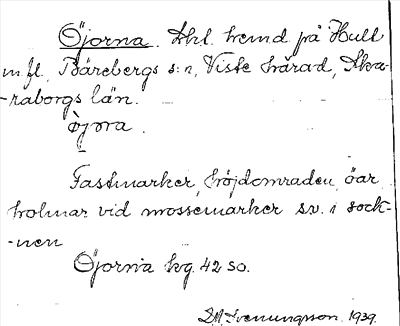 Öjorna. Skl. hemd på Hull
m.fl. Bärebergs s:n, Viste härad, Ska-
-raborgs län.
òjɷra.
Fastmarker, höjdområden, öar
holmar vid mossemarker sv. i sock-
-nen
Öjorna hg. 42 SO.
Götlind 1939.